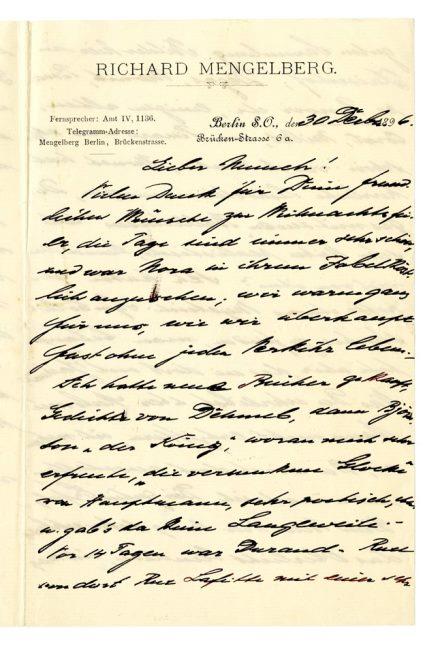 RICHARD MENGELBERG.
Fernsprecher: Amt IV, 1136.
Telegramm-Adresse:
Mengelberg Berlin, Brückenstrasse.
Berlin S.O., den 30 Deb. 1896.
Brücken-Strasse 6a.
Lieber Munch!
Vielen Dank für Deine freund
lichen Wünsche zur Weihnachtsfei
er, die Tage sind immer sehr schön,
und war Nora in ihrem Jubel köst
lich anzusehen, wir waren ganz
für uns, wie wir überhaupt
fast ohne jeden Verkehr leben.
Ich hatte neue Bücher gekauft,
Gedichte von Dehmel, dann Björn
son „der König", woran mich sehr
erfreute, „die versunkene Glocke"
von Hauptmann, sehr poetisch,
u. gab's da keine Langeweile.–
Vor 14 Tagen war Durand-Ruel
von dort Rue Lafitte mit einer